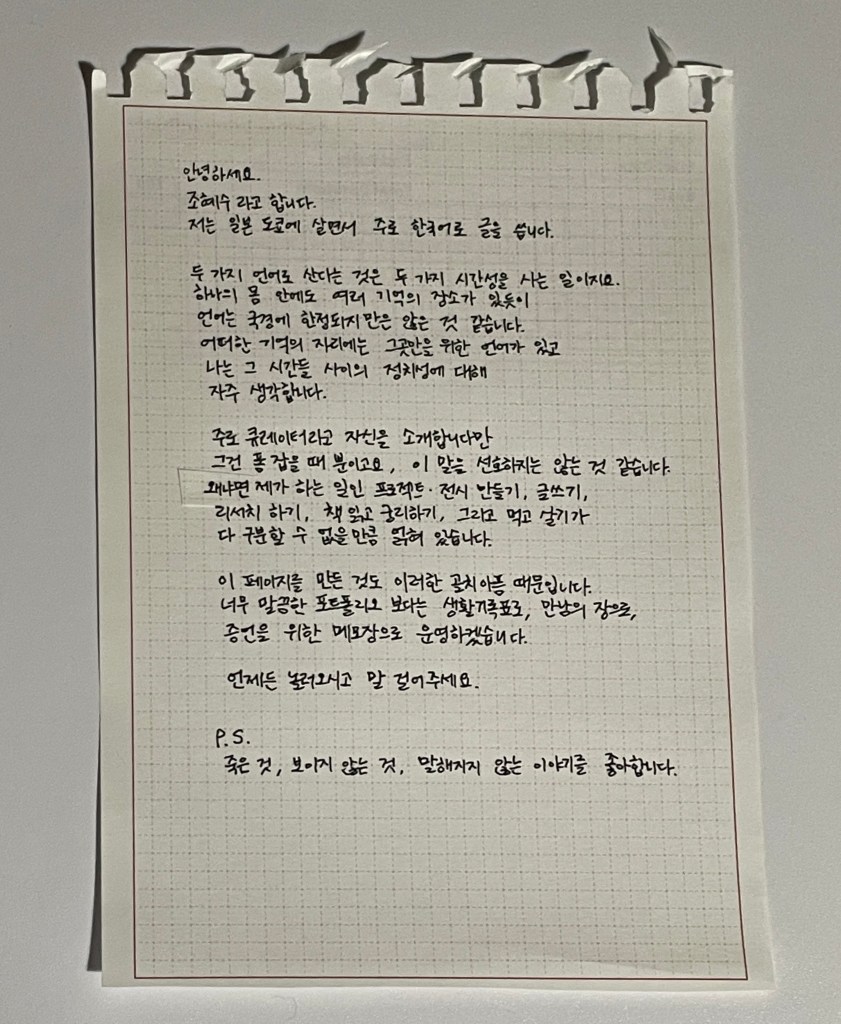 안녕하세요.
조혜수 라고 합니다.
저는 일본 도쿄에 살면서 주로 한국어로 글을 씁니다.
두 가지 언어로 산다는 것은 두 가지 시간성을 사는 일이지요.
하나의 몸 안에도 여러 기억의 장소가 있듯이
언어는 국경에 한정되지만은 않은 것 같습니다.
어떠한 기억의 자리에는 그곳만을 위한 언어가 있고
나는 그 시간들 사이의 정치성에 대해
자주 생각합니다.
주로 큐레이터라고 자신을 소개합니다만
그건 폼 잡을 때 뿐이고요, 이 말을 선호하지는 않는 것 같습니다.
왜냐면 제가 하는 일인 프로젝트·전시 만들기, 글쓰기,
리서치 하기, 책 읽고 궁리하기, 그리고 먹고 살기가
다 구분할 수 없을만큼 얽혀 있습니다.
이 페이지를 만든 것도 이러한 골치아픔 때문입니다.
너무 말끔한 포트폴리오 보다는 생활기록표로, 만남의 장으로,
증언을 위한 메모장으로 운영하겠습니다.
언제든 놀러오시고 말 걸어주세요.
P.S.
죽은 것, 보이지 않는 것, 말해지지 않는 이야기를 좋아합니다.